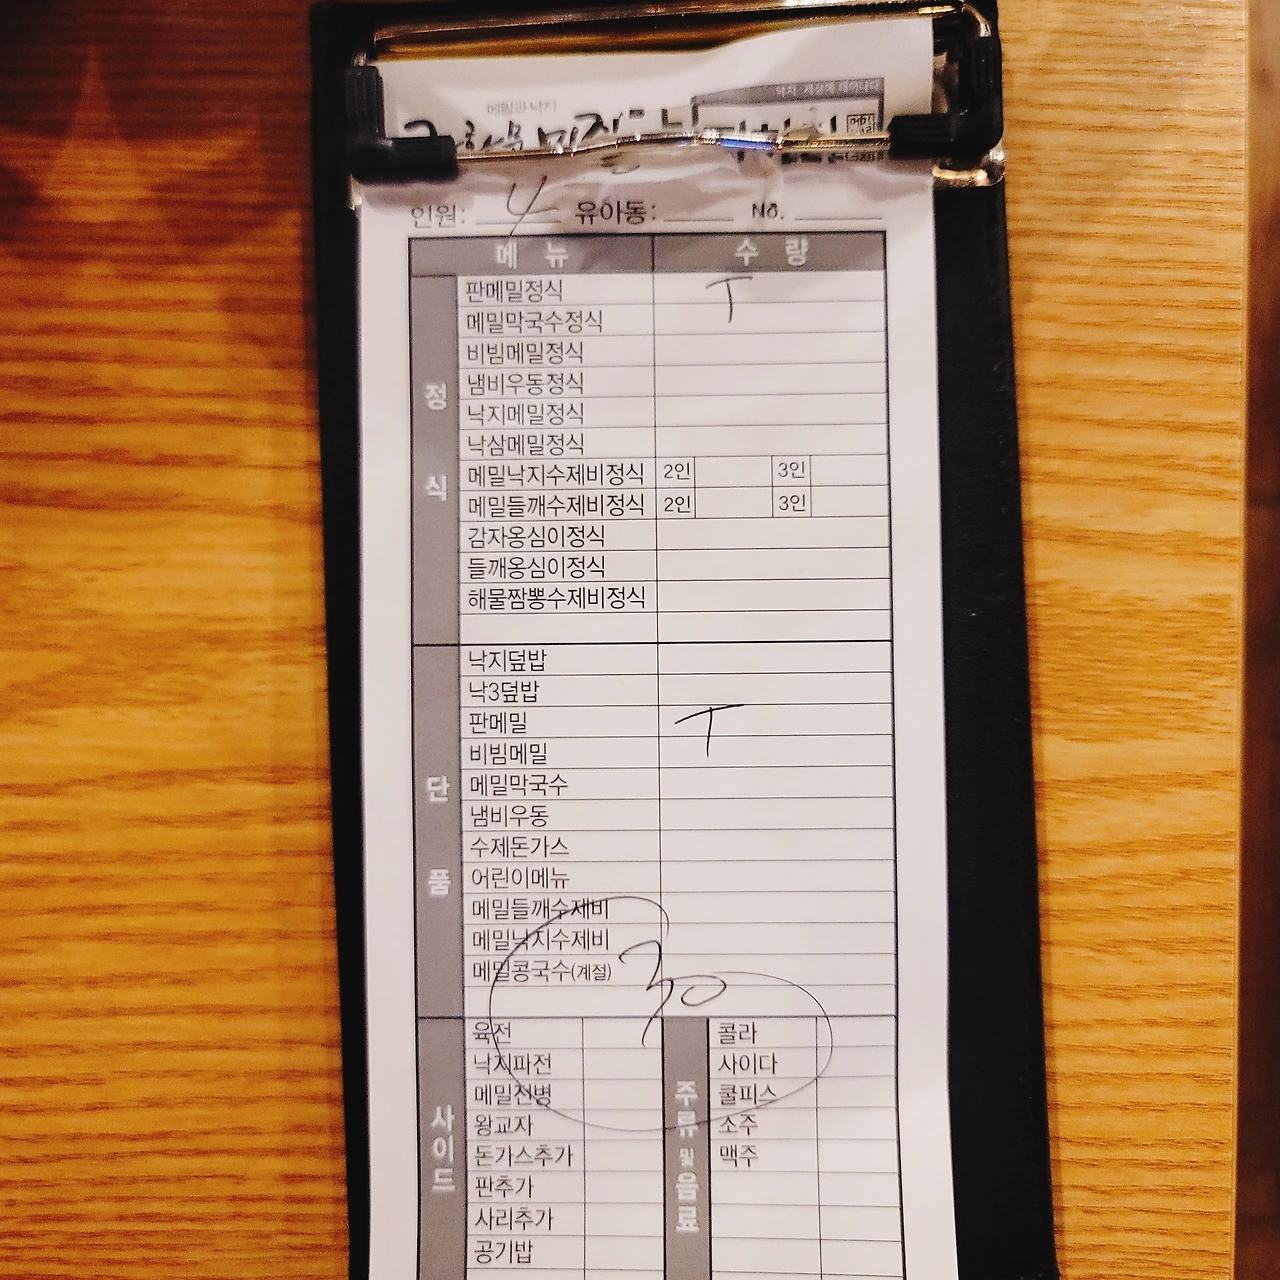 메밀과 낙지
낙지 세상에 태어나다
인원: 4 유아동: No.
메뉴 수량
정식
판메밀정식 T
메밀막국수정식
비빔메밀정식
냄비우동정식
낙지메밀정식
낙삼메밀정식
메밀낙지수제비정식 2인 3인
메밀들깨수제비정식 2인 3인
감자옹심이정식
들깨옹심이정식
해물짬뽕수제비정식
단품
낙지덮밥
낙3덮밥
판메밀 T
비빔메밀
메밀막국수
냄비우동
수제돈가스
어린이메뉴
메밀들깨수제비
메밀낙지수제비
메밀콩국수(계절)
30
사이드 주류 및 음료
육전 콜라
낙지파전 사이다
메밀전병 쿨피스
왕교자 소주
돈가스추가 맥주
판추가
사리추가
공기밥